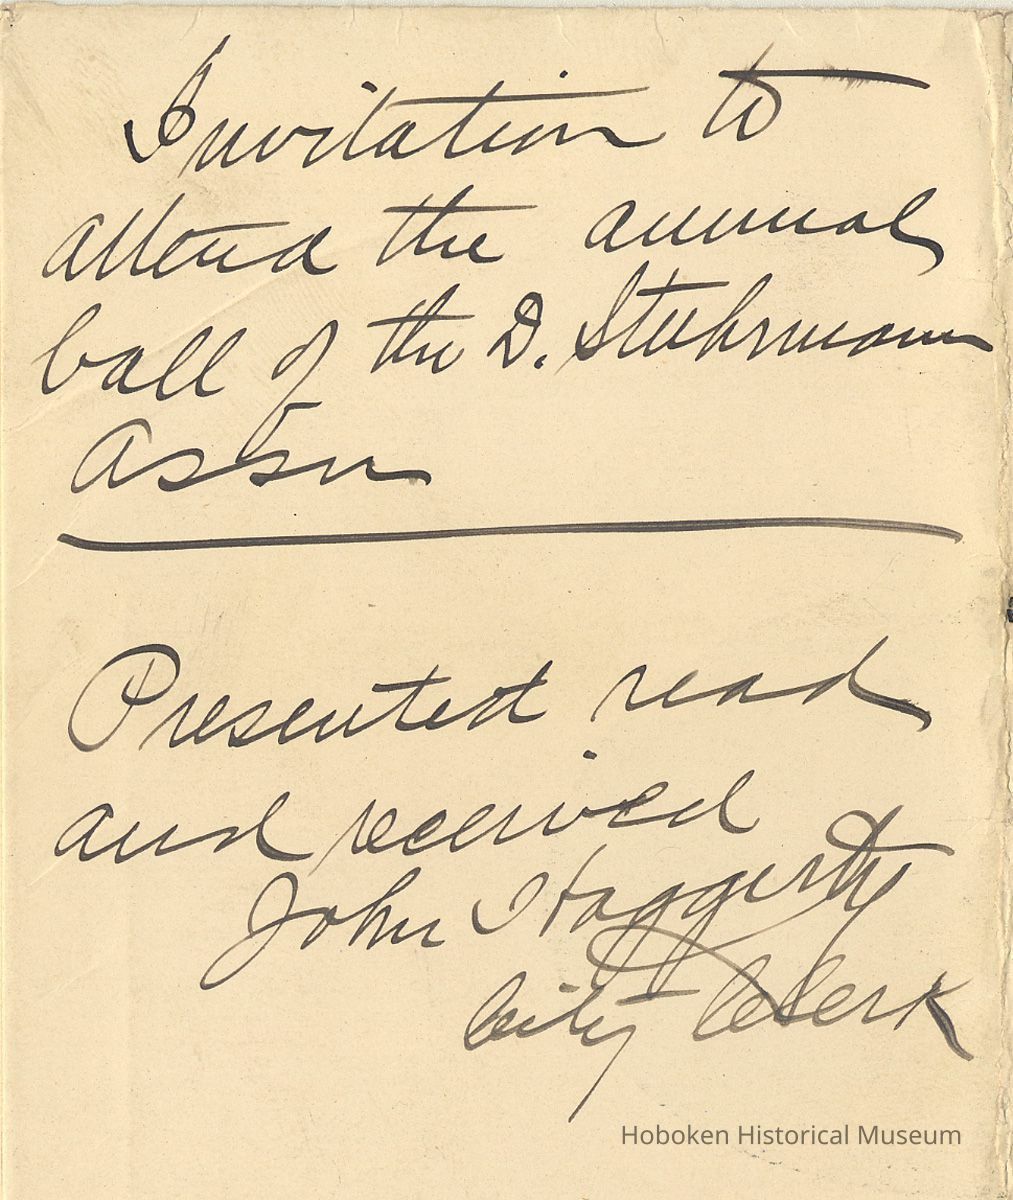 Invitation to
attend the annual
ball of the D. Stuhrmann
Assn
Presented read
and received
John Haggerty
City Clerk
Hoboken Historical Museum